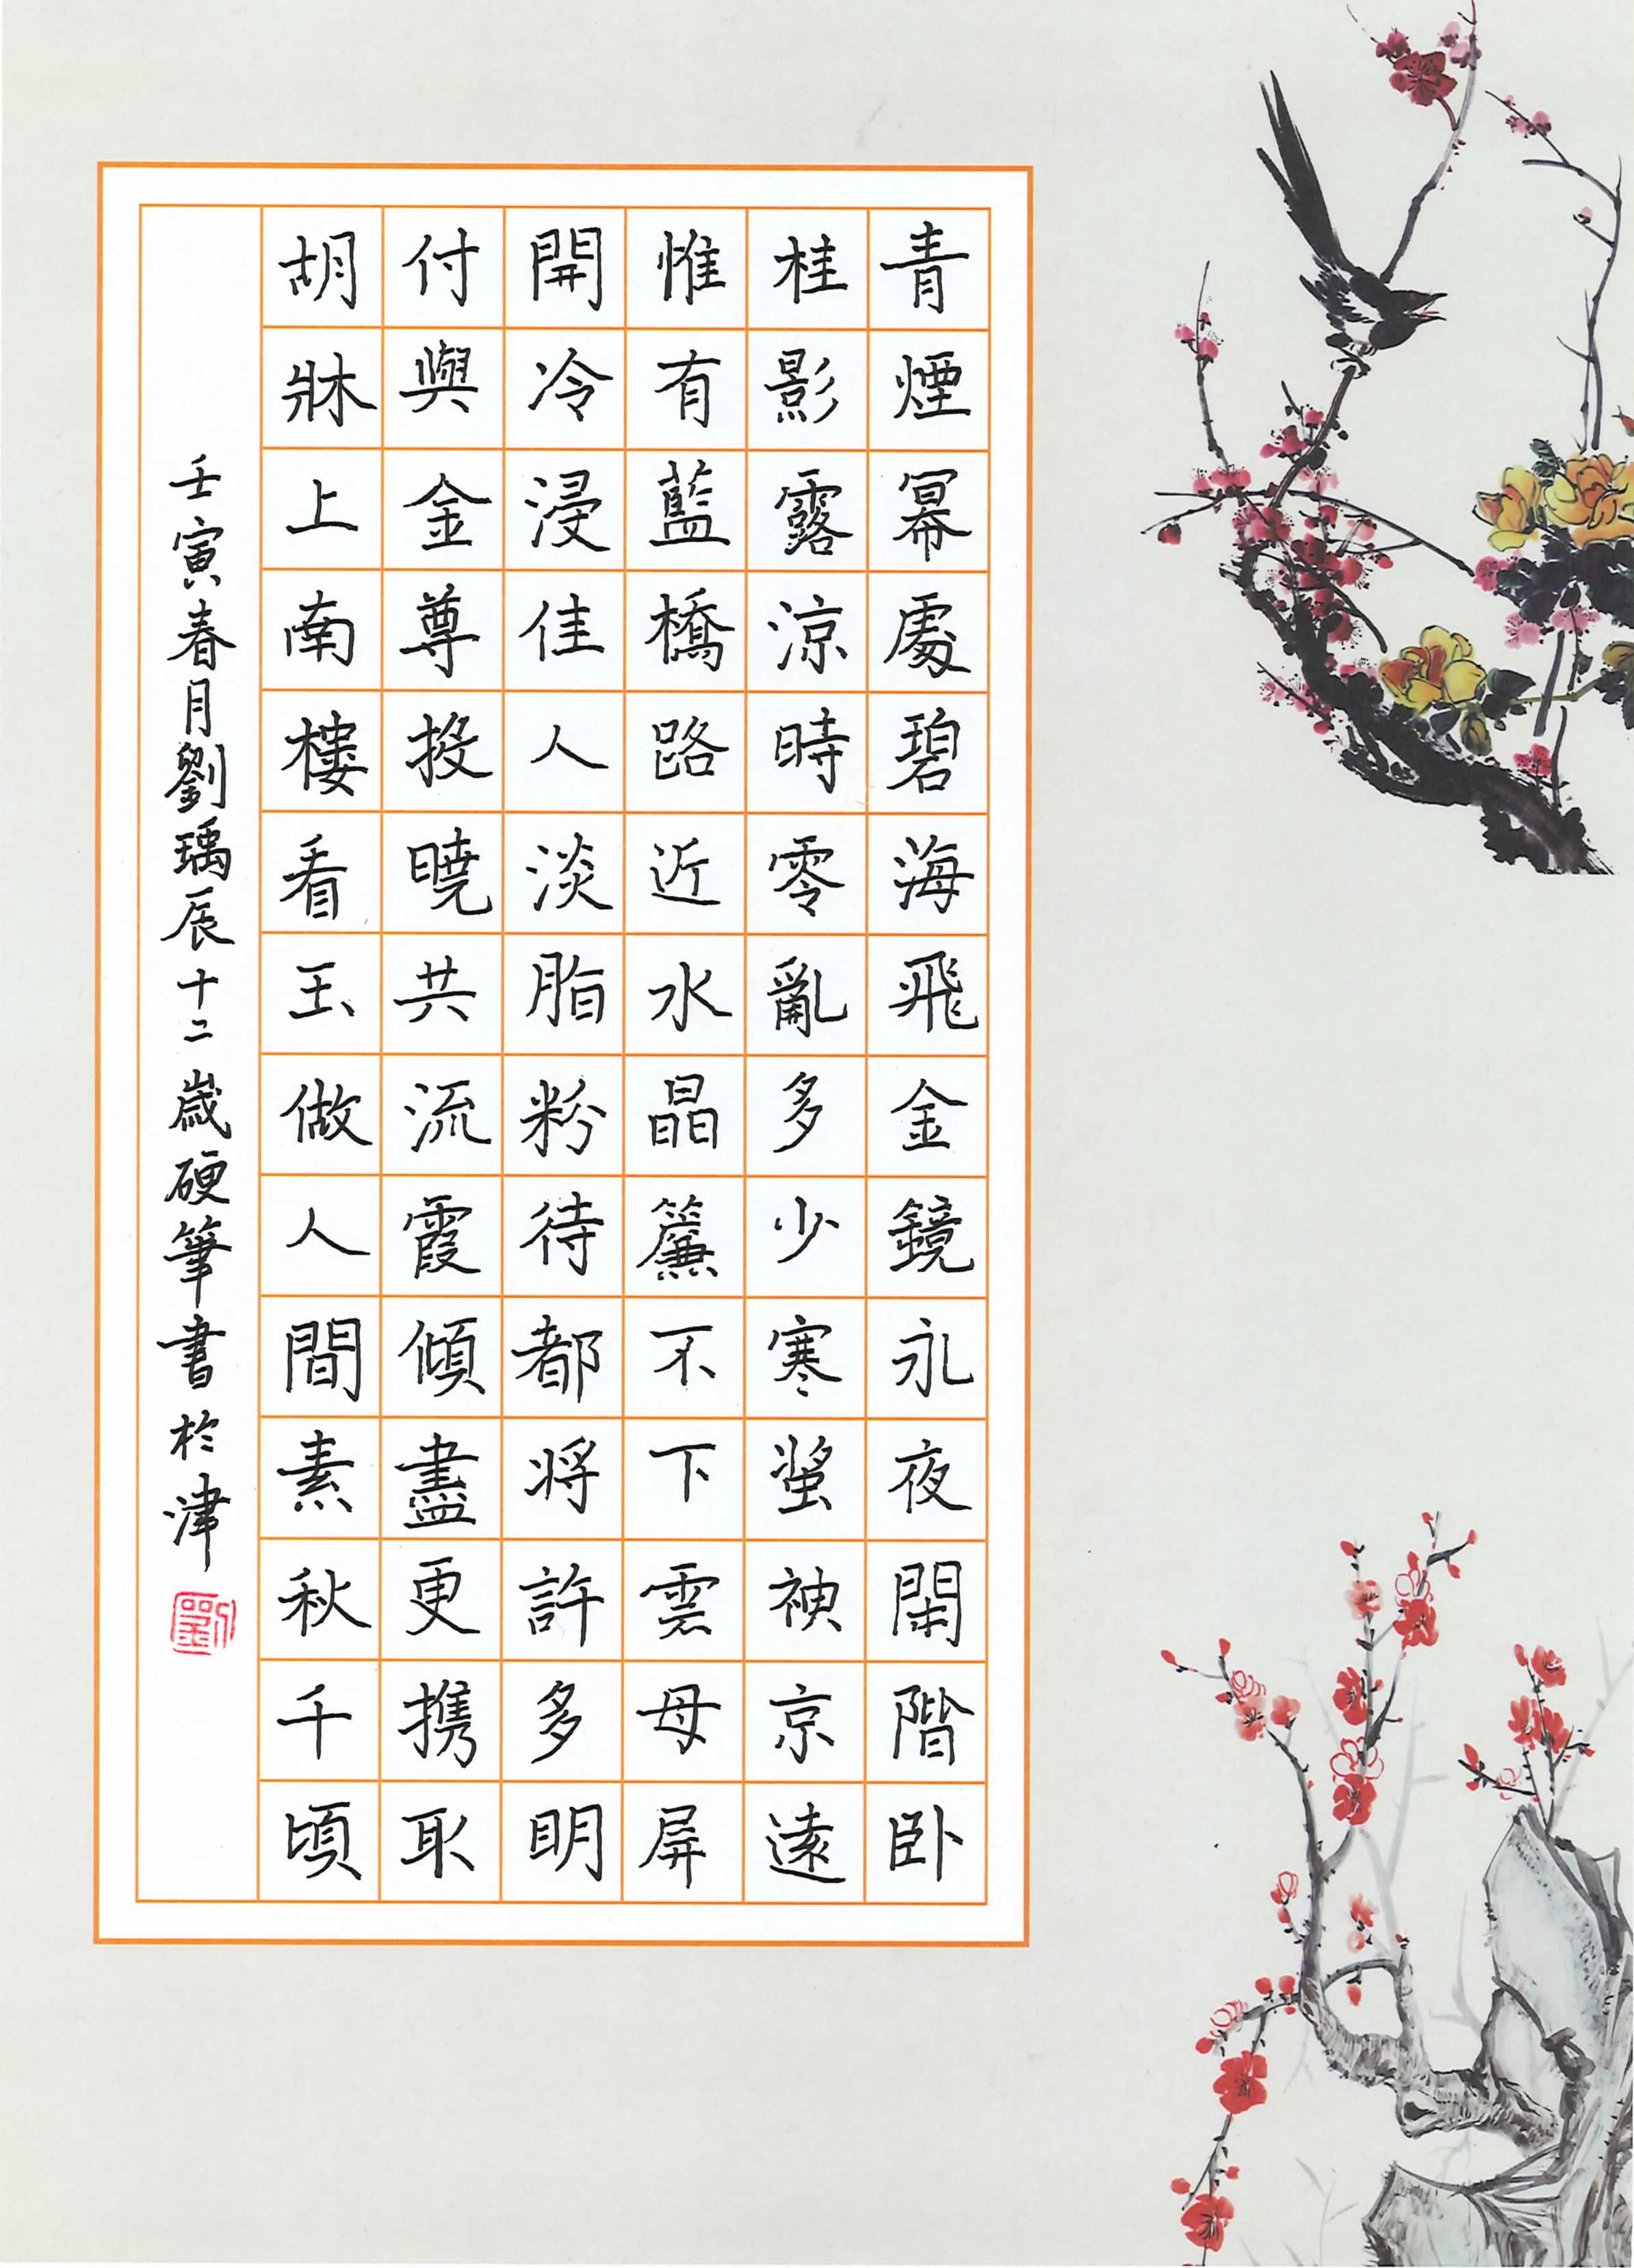 青煙冪處碧海飛金鏡永夜閑階卧
桂影露涼時零亂多少寒螿神京遠
惟有藍橋路近水晶簾不下雲母屏
開冷浸佳人淡脂粉待都將許多明
付與金尊投曉共流霞傾盡更携取
胡牀上南樓看玉做人間素秋千頃
壬寅春月劉瑀辰十二歲硬筆書於津
劉